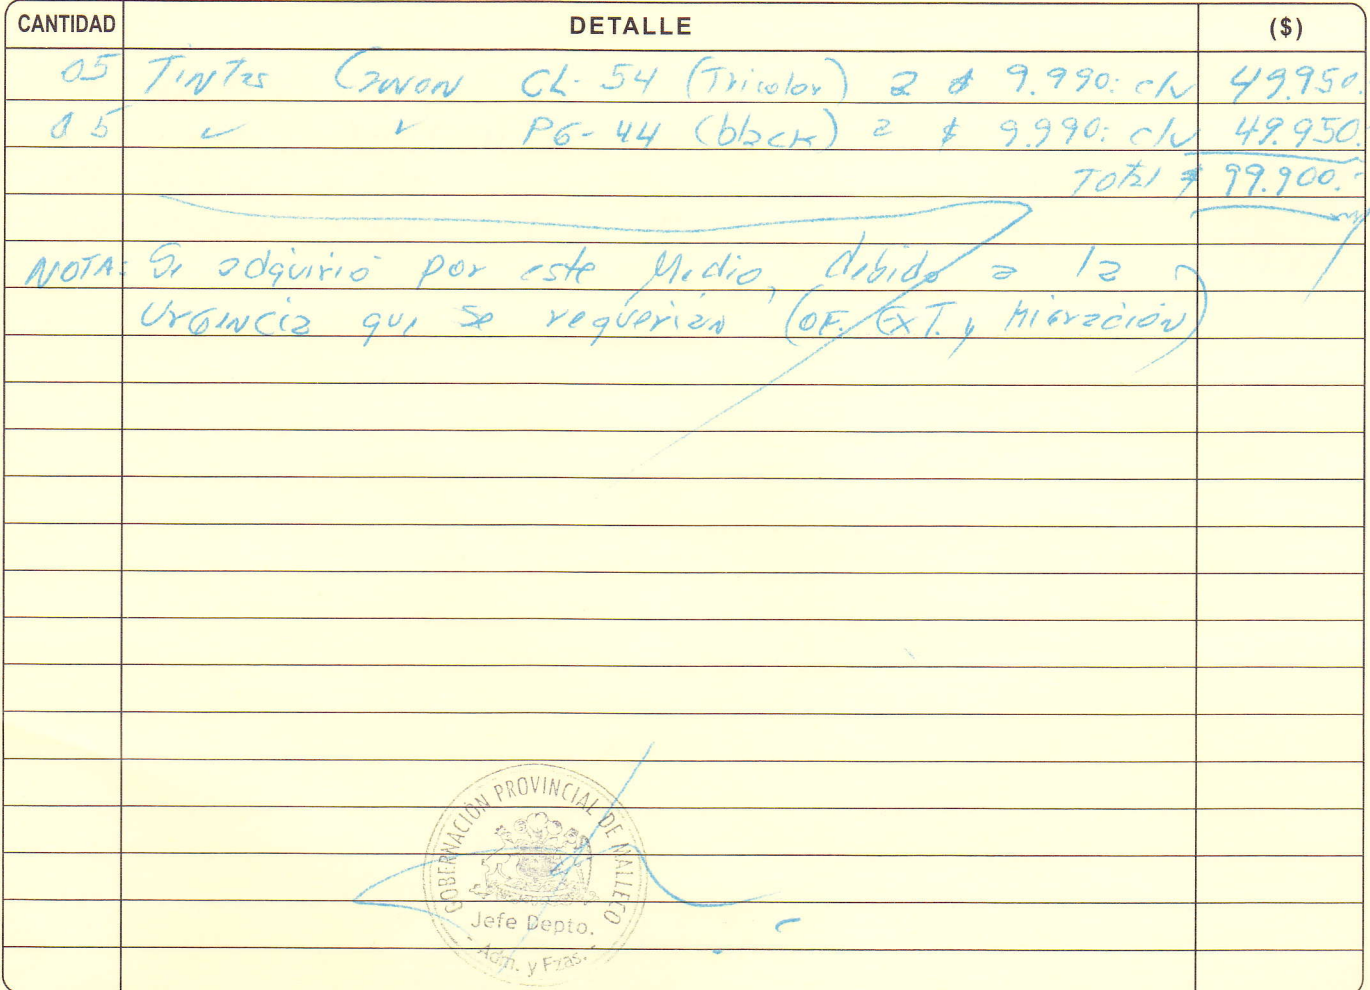 CANTIDAD DETALLE ($)
05 Tintas Canon CL-54 (Tricolor) a $ 9.990.- c/u 49.950.
05 " " PG-44 (black) a $ 9.990.- c/u 49.950.
Total $ 99.900.-
NOTA: Se adquirió por este Medio, debido a la
Urgencia que se requerían (OF. EXT. y Migración)
GOBERNACIÓN PROVINCIAL DE MALLECO
Jefe Depto.
- Adm. y Fzas. -